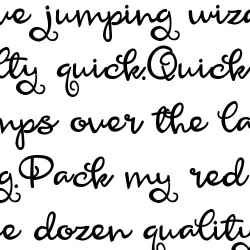 ve jumping wiza
lty quick.Quick
mps over the la
g.Pack my red
e dozen quality